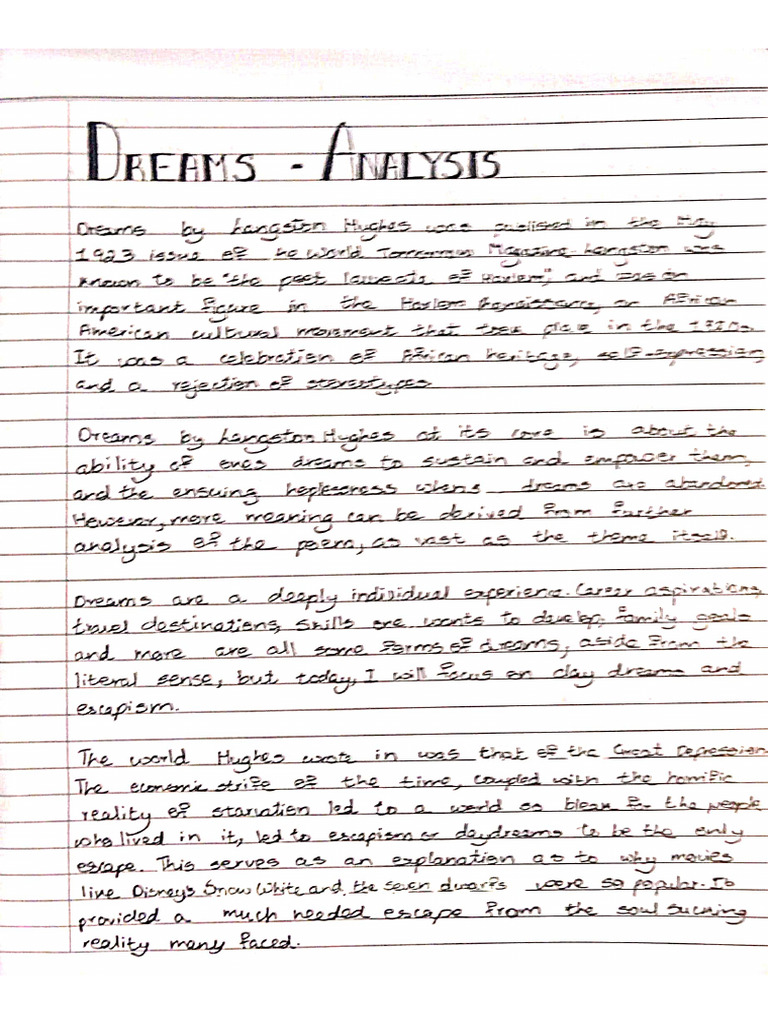 DREAMS - ANALYSIS
Dreams by Langston Hughes was published in the May
1923 issue of he World Tomorrow Magazine. Langston was
known to be "the poet laureate of Harlem", and was an
important figure in the Harlem Renaissance, an African
American cultural movement that took place in the 1920s.
It was a celebration of African heritage, self-expression,
and a rejection of stereotypes.
Dreams by Langston Hughes at its core is about the
ability of ones dreams to sustain and empower them,
and the ensuing heplessness when dreams are abandoned.
However, more meaning can be derived from further
analysis of the poem, as vast as the theme itself.
Dreams are a deeply individual experience. Career aspirations,
travel destinations, skills one wants to develop, family goals
and more are all some forms of dreams, aside from the
literal sense, but today, I will focus on day dreams and
escapism.
The world Hughes wrote in was that of the Great Depression.
The economic strife of the time, coupled with the horrific
reality of starvation led to a world so bleak for the people
who lived in it, led to escapism or daydreams to be the only
escape. This serves as an explanation as to why movies
like Disneys Snow White and the seven dwarfs were so popular. It
provided a much needed escape from the soul sucking
reality many faced.